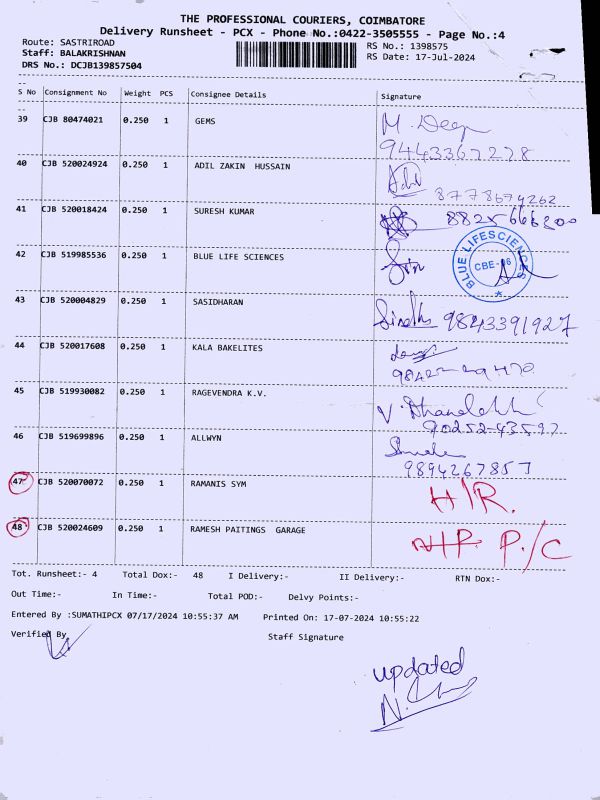 THE PROFESSIONAL COURIERS, COIMBATORE
Delivery Runsheet - PCX - Phone No.:0422-3505555 - Page No.:4
Route: SASTRIROAD RS No.: 1398575
Staff: BALAKRISHNAN RS Date: 17-Jul-2024
DRS No.: DCJB139857504
S No Consignment No Weight PCS Consignee Details Signature
39 CJB 80474021 0.250 1 GEMS M. Deep
9443367278
40 CJB 520024924 0.250 1 ADIL ZAKIN HUSSAIN Adil
8778674262
41 CJB 520018424 0.250 1 SURESH KUMAR
42 CJB 519985536 0.250 1 BLUE LIFE SCIENCES BLUE LIFESCIENCES CBE-
43 CJB 520004829 0.250 1 SASIDHARAN
9843391927
44 CJB 520017608 0.250 1 KALA BAKELITES
45 CJB 519930082 0.250 1 RAGEVENDRA K.V.
90252-43597
46 CJB 519699896 0.250 1 ALLWYN
9894267857
47 CJB 520070072 0.250 1 RAMANIS SYM H/R.
48 CJB 520024609 0.250 1 RAMESH PAITINGS GARAGE P/C
Tot. Runsheet:- 4 Total Dox:- 48 I Delivery:- II Delivery:- RTN Dox:-
Out Time:- In Time:- Total POD:- Delvy Points:-
Entered By :SUMATHIPCX 07/17/2024 10:55:37 AM Printed On: 17-07-2024 10:55:22
Verified By Staff Signature
updated